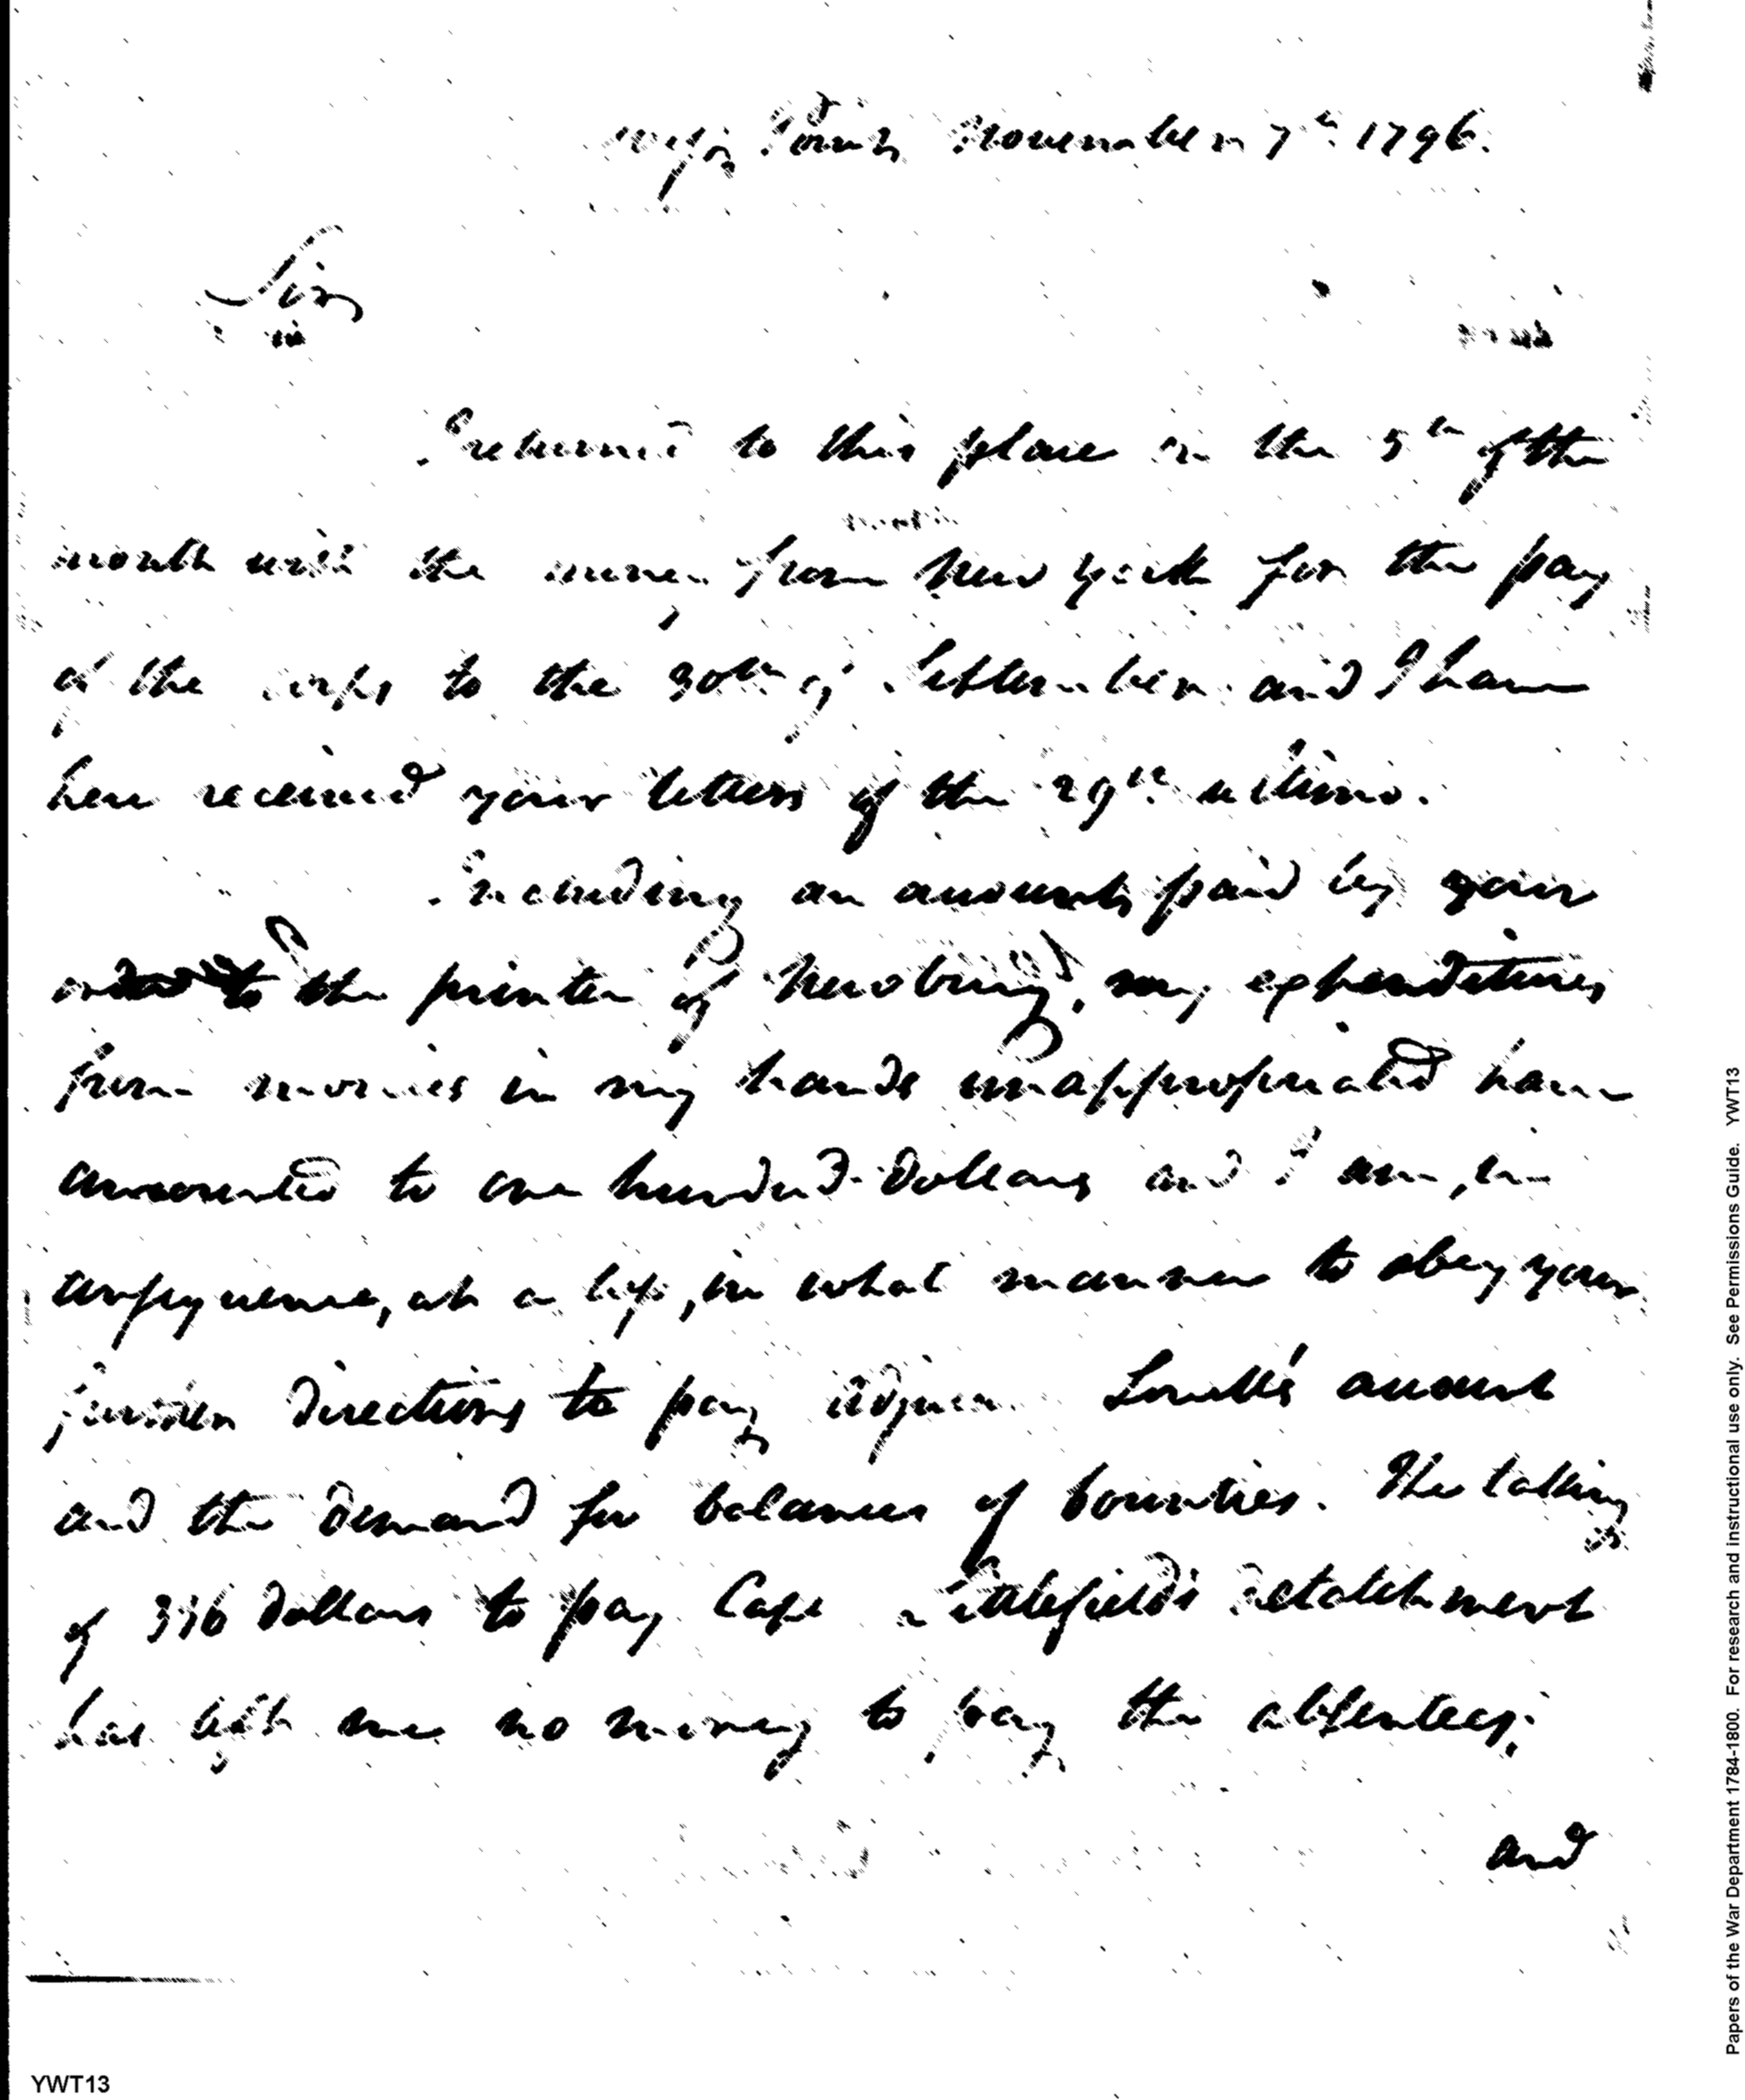 West Point November 7th 1796.
Sir
I returned to this place on the 5th of the
month with the money from New York for the pay
of the corps to the 30th of September and I have
here received your letters of the 29th ultimo.
Including an account paid by your
order to the printer of Newburg, my expenditures
from monies in my hands unappropriated have
amounted to one hundred dollars and I am, in
consequence, at a loss, in what manner to obey your
further directions to pay Lovell's account
and the demand for balances of bounties. The taking
of 336 dollars to pay Capt Littlefield's detatchment
has left me no money to pay the absentees;
and
YWT13
Papers of the War Department 1784-1800. For research and instructional use only. See Permissions Guide. YWT13